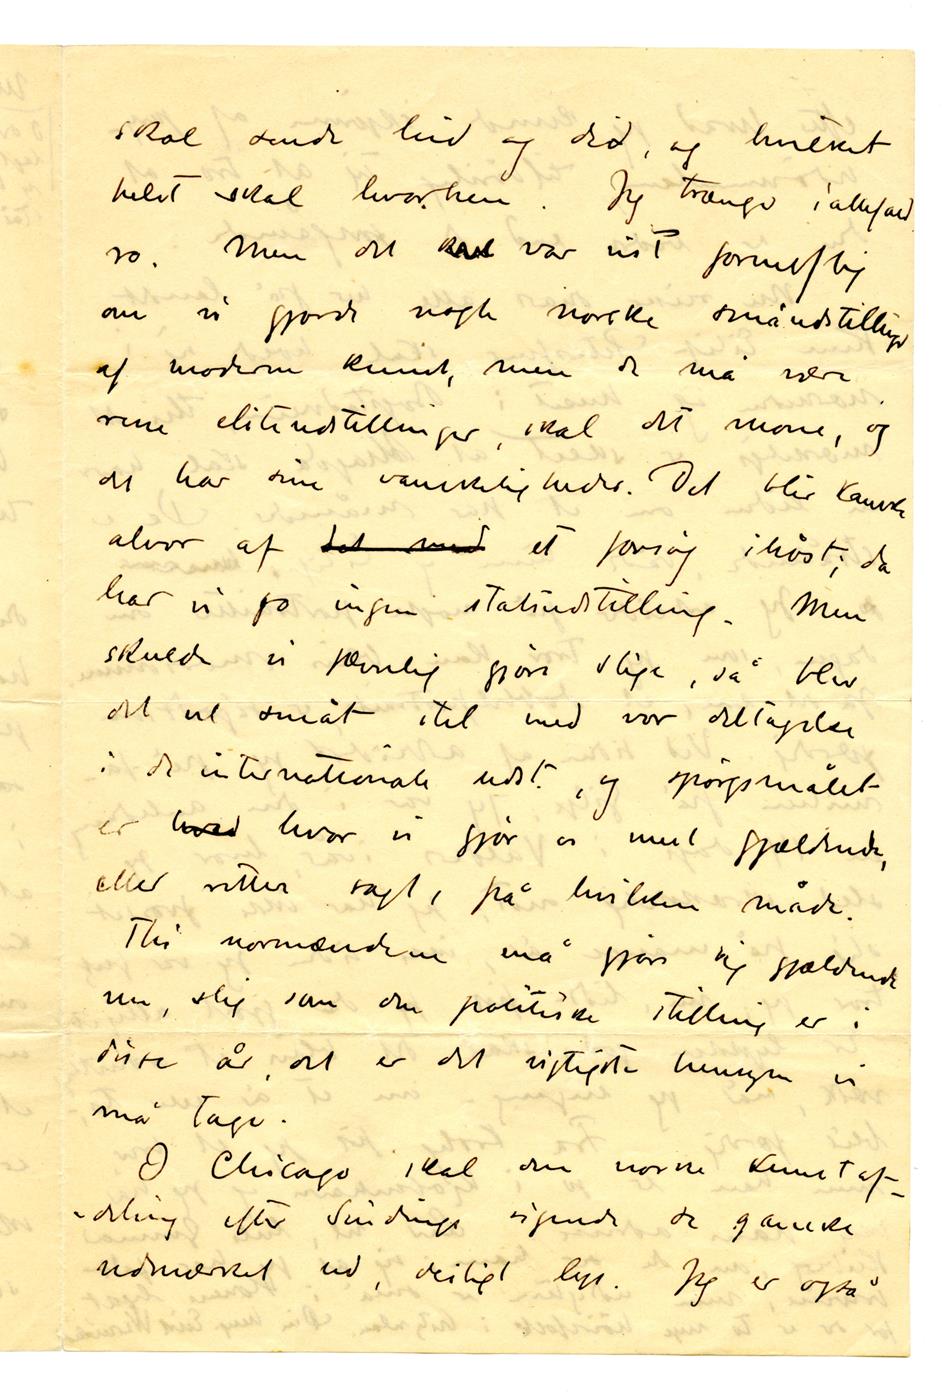 skal sende hid og did, og hvilket
helst skal hvorhen. Jeg trænger iallefald
ro. Men det var vist fornuftig
om vi gjorde nogle norske småudstillinger
af moderne kunst, men de må være
rene eliteudstillinger, skal det mone, og
det har sine vanskeligheder. Det blir kanske
alvor af det med et forsøg ihøst; da
har vi jo ingen statsudstilling. Men
skulde vi jævnlig gjøre slige, så blev
det vel småt itil med vor deltagelse
i de internationale udst., og spørgsmålet
er hvad hvor vi gjør os mest gjældende,
eller rettere sagt, på hvilken måde.
Thi normændene må gjøre sig gjældende
nu, slig som den politiske stilling er i
disse år, det er det vigtigste hensyn vi
må tage.
I Chicago skal den norske kunstaf-
-deling efter Sindings sigende se ganske
udmærket ud, deiligt lys. Jeg er også